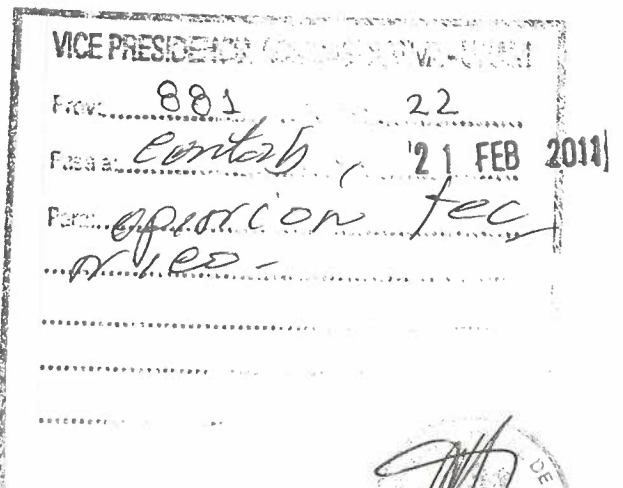 VICE PRESIDENCIA
Prov. 881 22
Pase a: contab, 21 FEB 2011
Para: opinion tec
nico-
DE